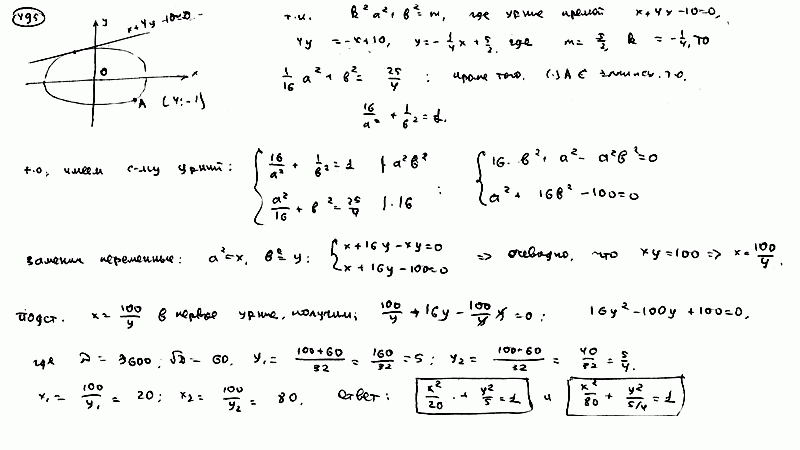 495
y
x+4y-10=0
0
x
A (4;-1)
т.к. k²a²+b²=m², где ур-ние прямой x+4y-10=0,
4y=-x+10, y=-1/4x+5/2, где m=5/2, k=-1/4, то
1/16 a²+b²=25/4; кроме того, (·)A ∈ эллипсу, т.о.
16/a²+1/b²=1.
т.о, имеем с-му ур-ний: { 16/a²+1/b²=1 |·a²b² ; { 16·b²+a²-a²b²=0
{ a²/16+b²=25/4 |·16 { a²+16b²-100=0
заменим переменные: a²=x, b²=y; { x+16y-xy=0 => очевидно, что xy=100 => x=100/y.
{ x+16y-100=0
подст. x=100/y в первое ур-ние, получим: 100/y+16y-100/y·y=0; 16y²-100y+100=0,
где D=3600; √D=60. y₁=(100+60)/32=160/32=5; y₂=(100-60)/32=40/32=5/4.
x₁=100/y₁=20; x₂=100/y₂=80. Ответ: x²/20+y²/5=1 и x²/80+y²/5/4=1